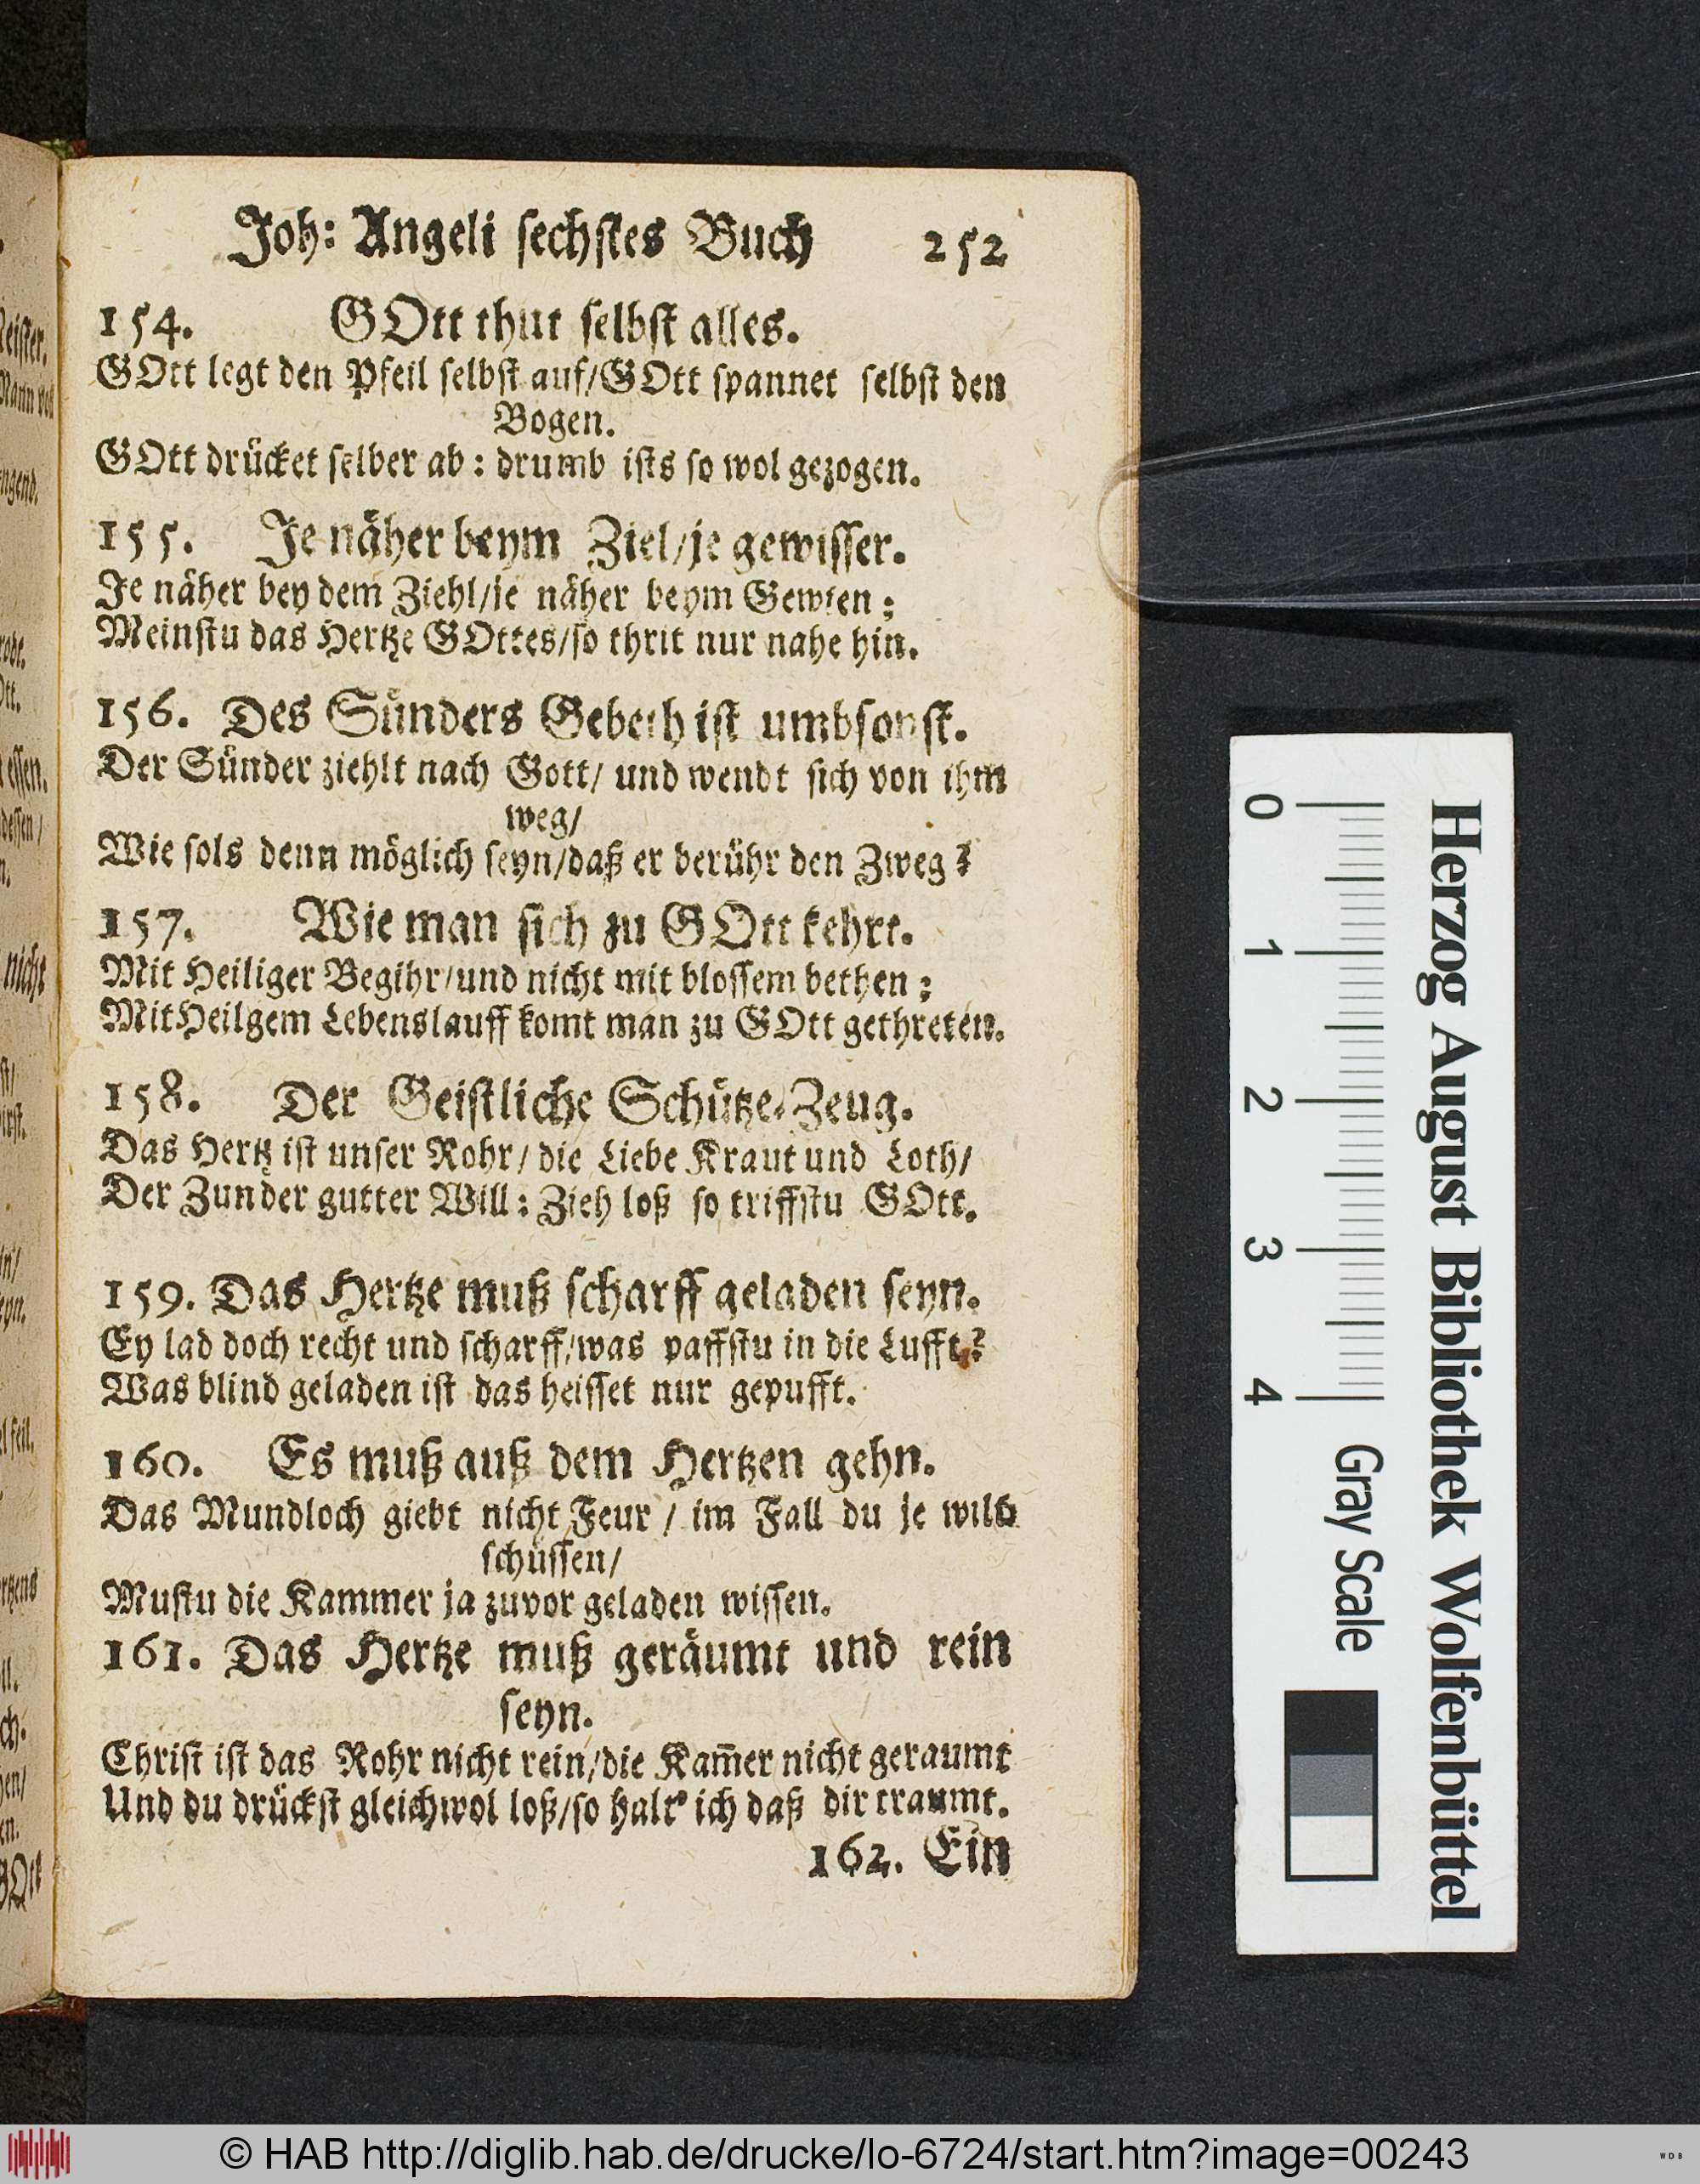 Joh: Angeli sechstes Buch 252
154. GOtt thut selbst alles.
GOtt legt den Pfeil selbst auf/GOtt spannet selbst den
Bogen.
GOtt drücket selber ab: drumb ists so wol gezogen.
155. Je näher beym Ziel/je gewisser.
Je näher bey dem Ziehl/je näher beym Gewien;
Meinstu das Hertze GOttes/so thrit nur nahe hin.
156. Des Sünders Gebeth ist umbsonst.
Der Sünder ziehlt nach Gott/ und wendt sich von ihm
weg/
Wie sols denn möglich seyn/daß er berühr den Zweg?
157. Wie man sich zu GOtt kehrt.
Mit Heiliger Begihr/und nicht mit blossem bethen;
Mit Heilgem Lebenslauff komt man zu GOtt gethreten.
158. Der Geistliche Schütze-Zeug.
Das Hertz ist unser Rohr/ die Liebe Kraut und Loth/
Der Zunder gutter Will: Zieh loß so triffstu GOtt.
159. Das Hertze muß scharff geladen seyn.
Ey lad doch recht und scharff/was paffstu in die Lufft?
Was blind geladen ist das heisset nur gepufft.
160. Es muß auß dem Hertzen gehn.
Das Mundloch giebt nicht Feur / im Fall du je wilt
schüssen/
Mustu die Kammer ja zuvor geladen wissen.
161. Das Hertze muß geräumt und rein
seyn.
Christ ist das Rohr nicht rein/die Kam̄er nicht geraumt
Und du drückst gleichwol loß/so halt' ich daß dir traumt.
162. Ein
0 1 2 3 4 Gray Scale
Herzog August Bibliothek Wolfenbüttel
© HAB http://diglib.hab.de/drucke/lo-6724/start.htm?image=00243
WDB